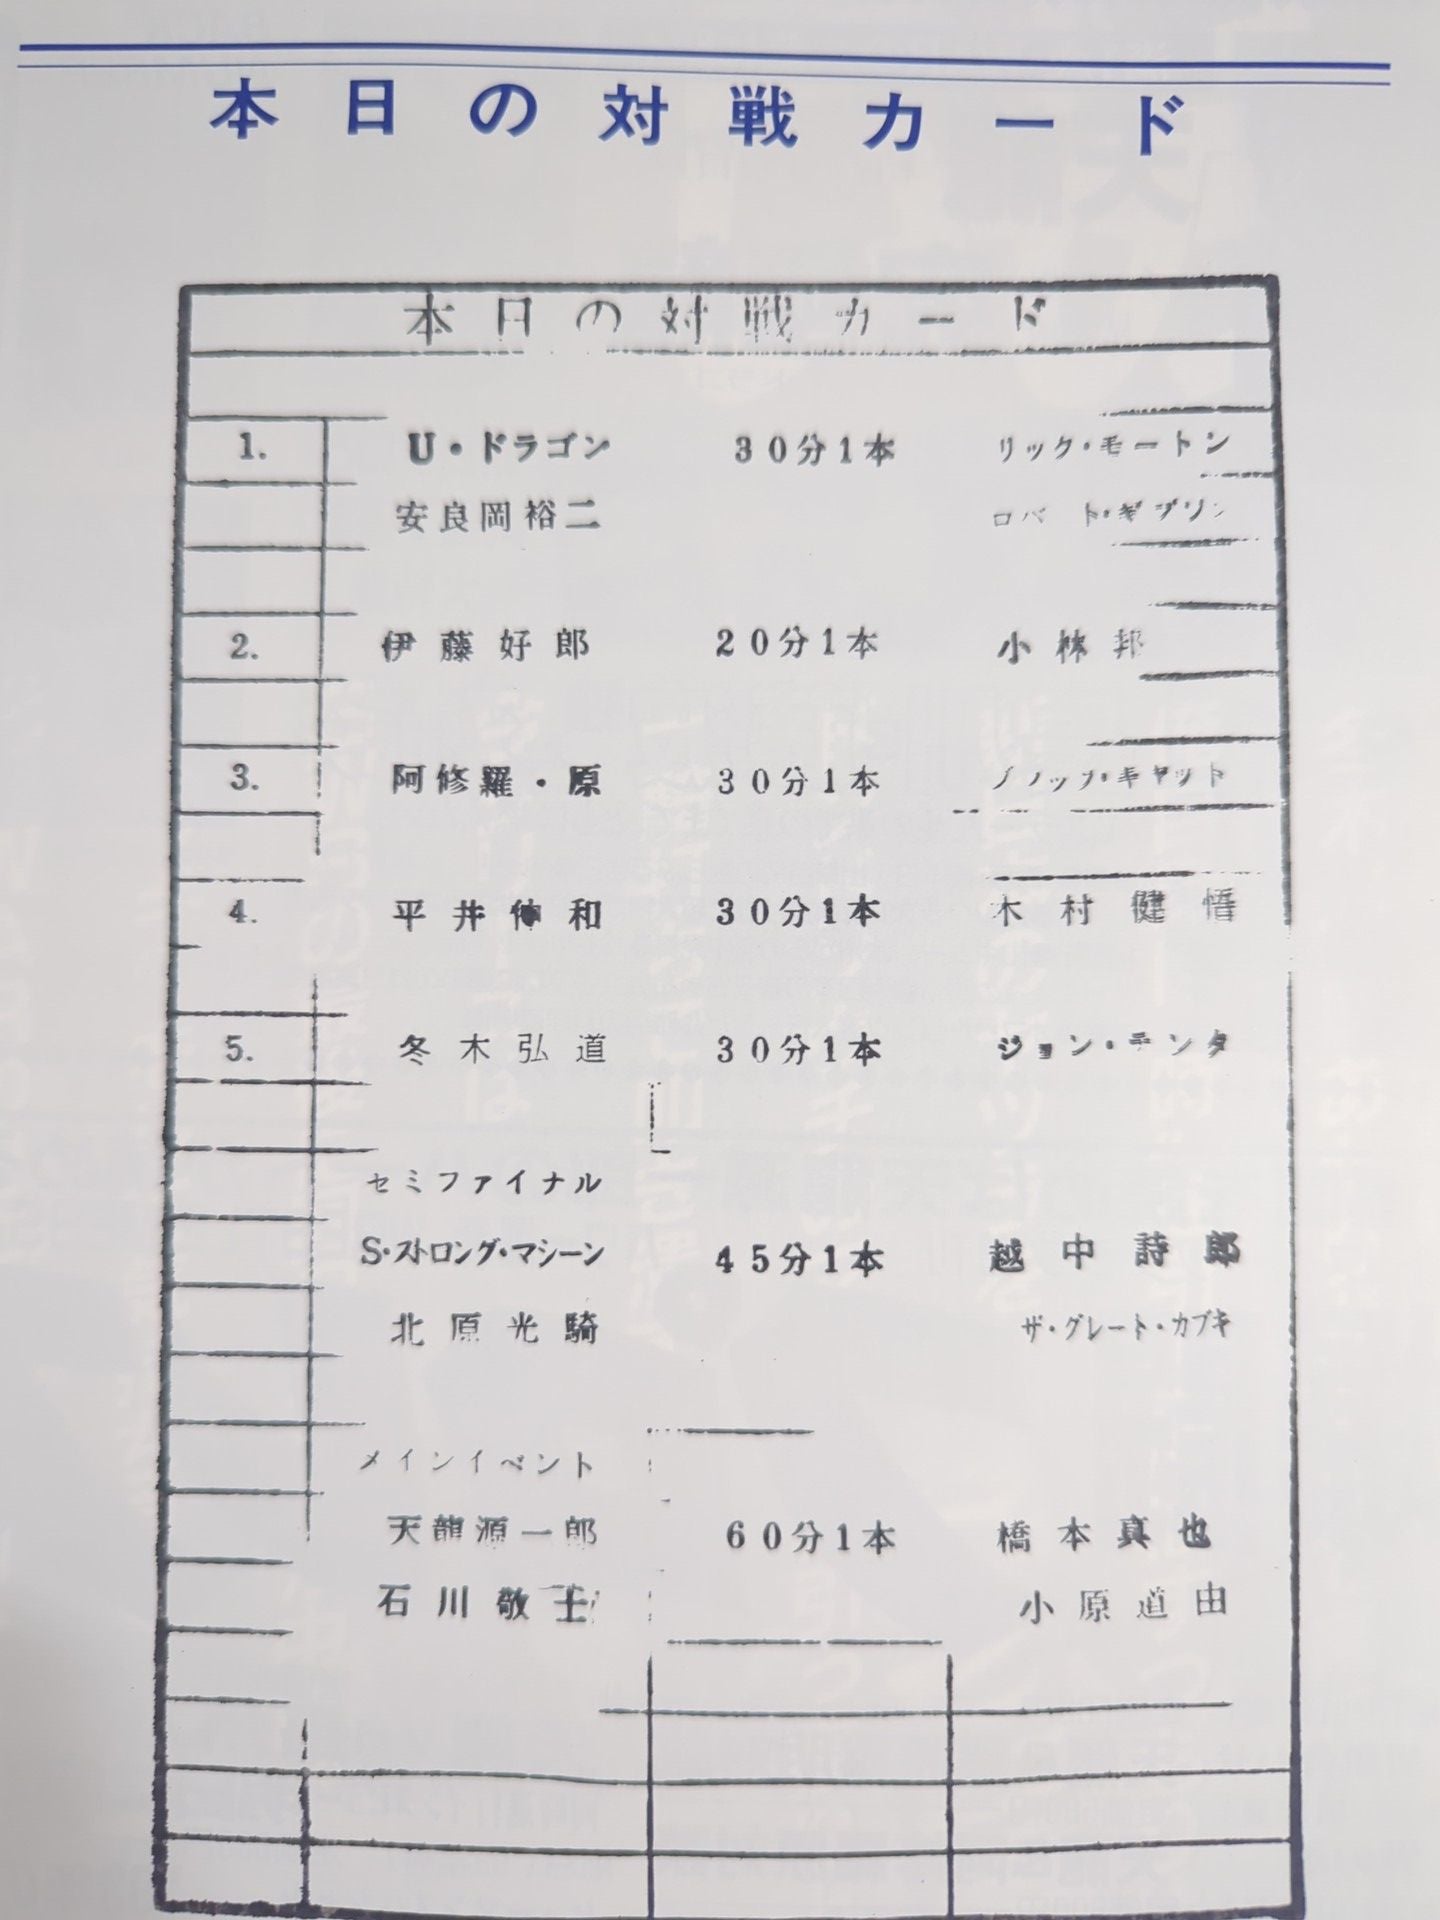 本日の対戦カード
本日の対戦カード
1. U・ドラゴン 30分1本 リック・モートン
安良岡裕二 ロバート・ギブソン
2. 伊藤好郎 20分1本 小林邦
3. 阿修羅・原 30分1本 ブラック・キャット
4. 平井伸和 30分1本 木村健悟
5. 冬木弘道 30分1本 ジョン・テンタ
セミファイナル
S・ストロング・マシーン 45分1本 越中詩郎
北原光騎 ザ・グレート・カブキ
メインイベント
天龍源一郎 60分1本 橋本真也
石川敬士 小原道由